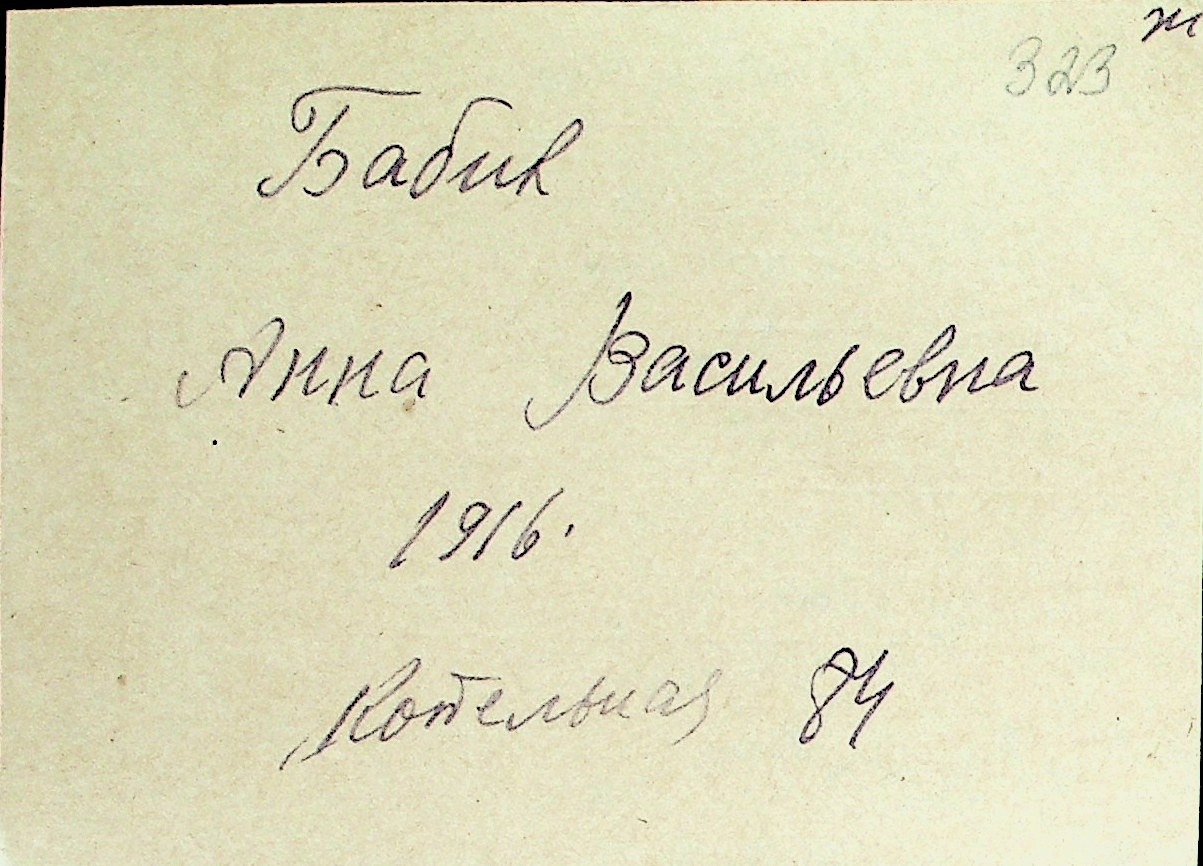 ж
323
Бабик
Анна Васильевна
1916.
Котельная 84